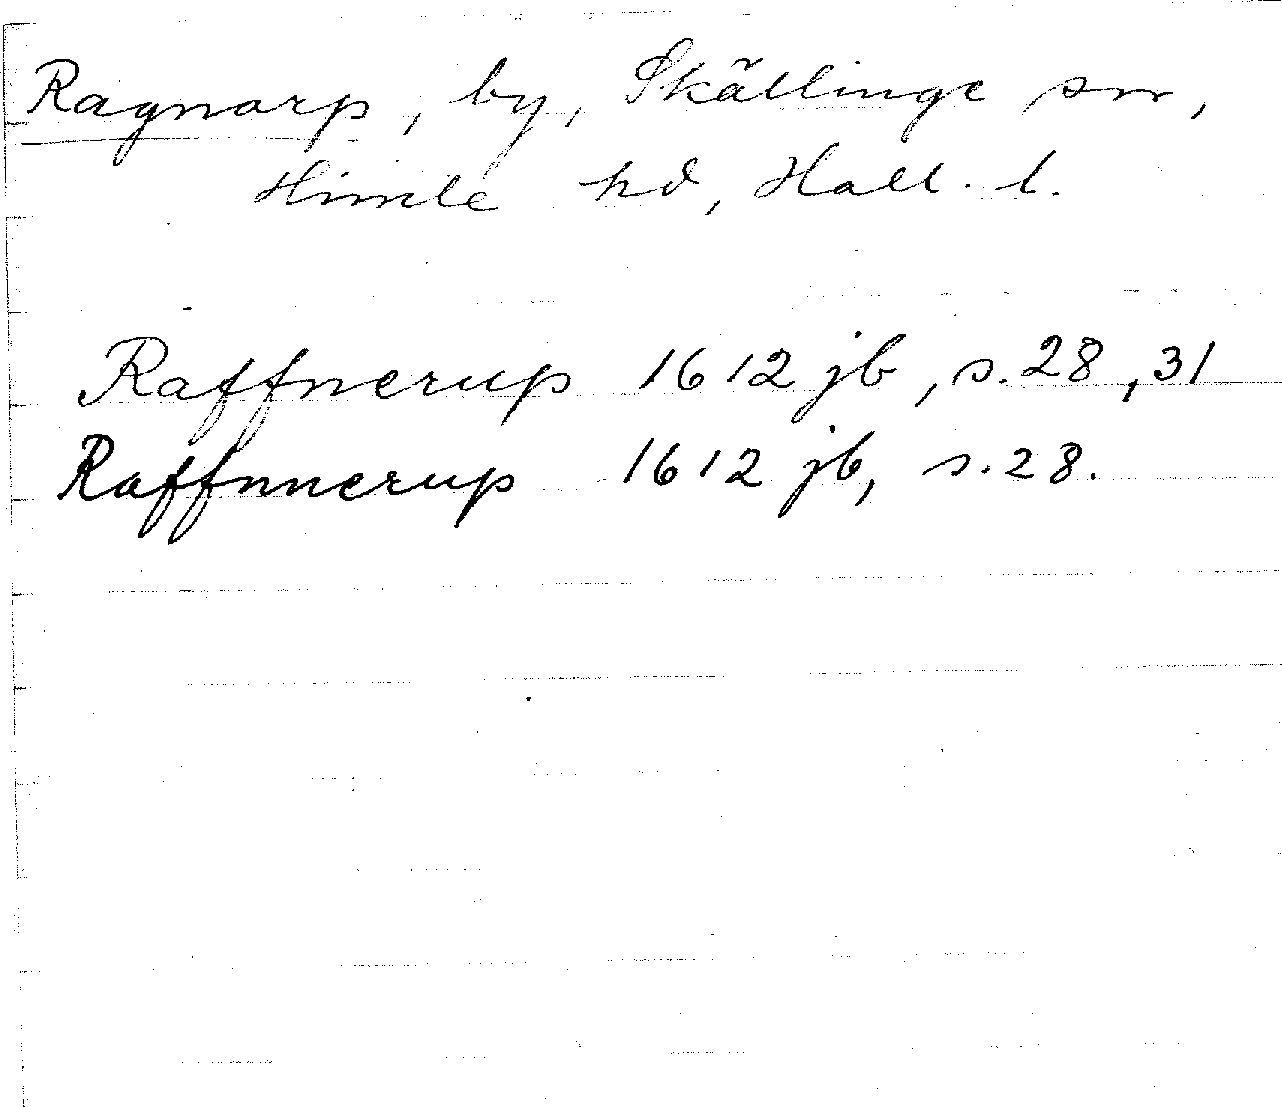 Ragnarp, by, Skällinge sn,
Himle hd, Hall. l.
Raffnerup 1612 jb, s. 28, 31
Raffnnerup 1612 jb, s. 28.